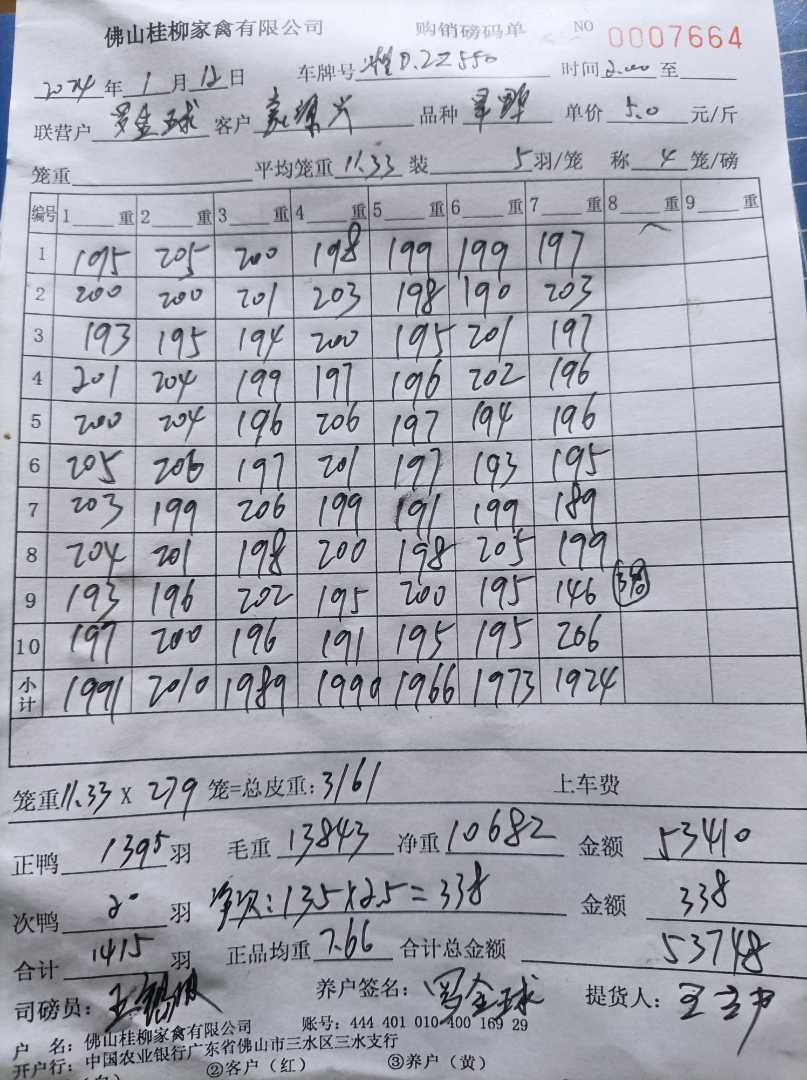 佛山桂柳家禽有限公司 购销磅码单 NO 0007664
2024年1月12日 车牌号 0.2Z550 时间2:00至
联营户 罗金球 客户 品种 单价 5.0 元/斤
笼重 平均笼重 11.33 装 5羽/笼 称 4 笼/磅
编号 1 重 2 重 3 重 4 重 5 重 6 重 7 重 8 重 9 重
1 195 205 200 198 199 199 197
2 200 200 201 203 198 190 203
3 193 195 194 200 195 201 197
4 201 204 199 197 196 202 196
5 200 204 196 206 197 194 196
6 205 206 197 201 197 193 195
7 203 199 206 199 191 199 189
8 204 201 198 200 198 205 199
9 193 196 202 195 200 195 146
10 197 200 196 191 195 195 206
小计 1991 2010 1989 1990 1966 1973 1924
笼重11.33 X 279 笼=总皮重:3161 上车费
正鸭 1395 羽 毛重 13843 净重 10682 金额 53410
次鸭 20 羽 净次:135X2.5=338 金额 338
合计 1415 羽 正品均重 7.66 合计总金额 53748
司磅员: 养户签名: 罗金球 提货人:
户 名: 佛山桂柳家禽有限公司 账号: 444 401 010 400 169 29
开户行: 中国农业银行广东省佛山市三水区三水支行
②客户(红) ③养户(黄)